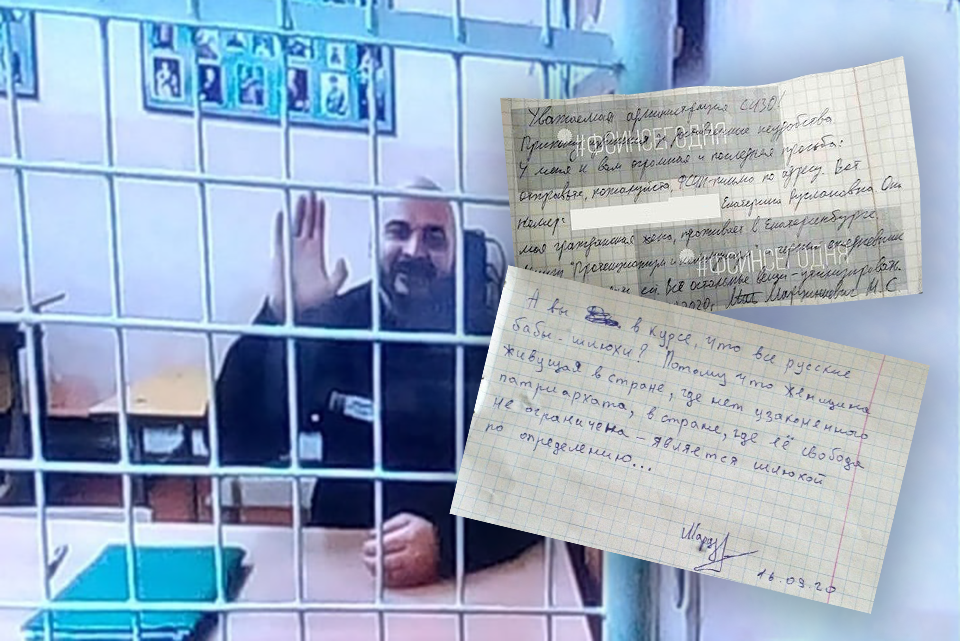 Уважаемая администрация СИЗО!
Приношу извинения за доставленные неудобства
#ФСИНСЕГОДНЯ
У меня к вам огромная и последняя просьба:
отправьте, пожалуйста, ФСИН-письмо по адресу. Вот
номер: Екатерина Руслановна Она
моя гражданская жена, проживает в Екатеринбурге.
#ФСИНСЕГОДНЯ
ей. Всё остальные вещи - утилизировать.
Марцинкевич М.С
А вы в курсе, что все русские
бабы - шлюхи? Потому что женщина
живущая в стране, где нет узаконенного
патриархата, в стране, где её свобода
не ограничена - является шлюхой
по определению...
16.09.20